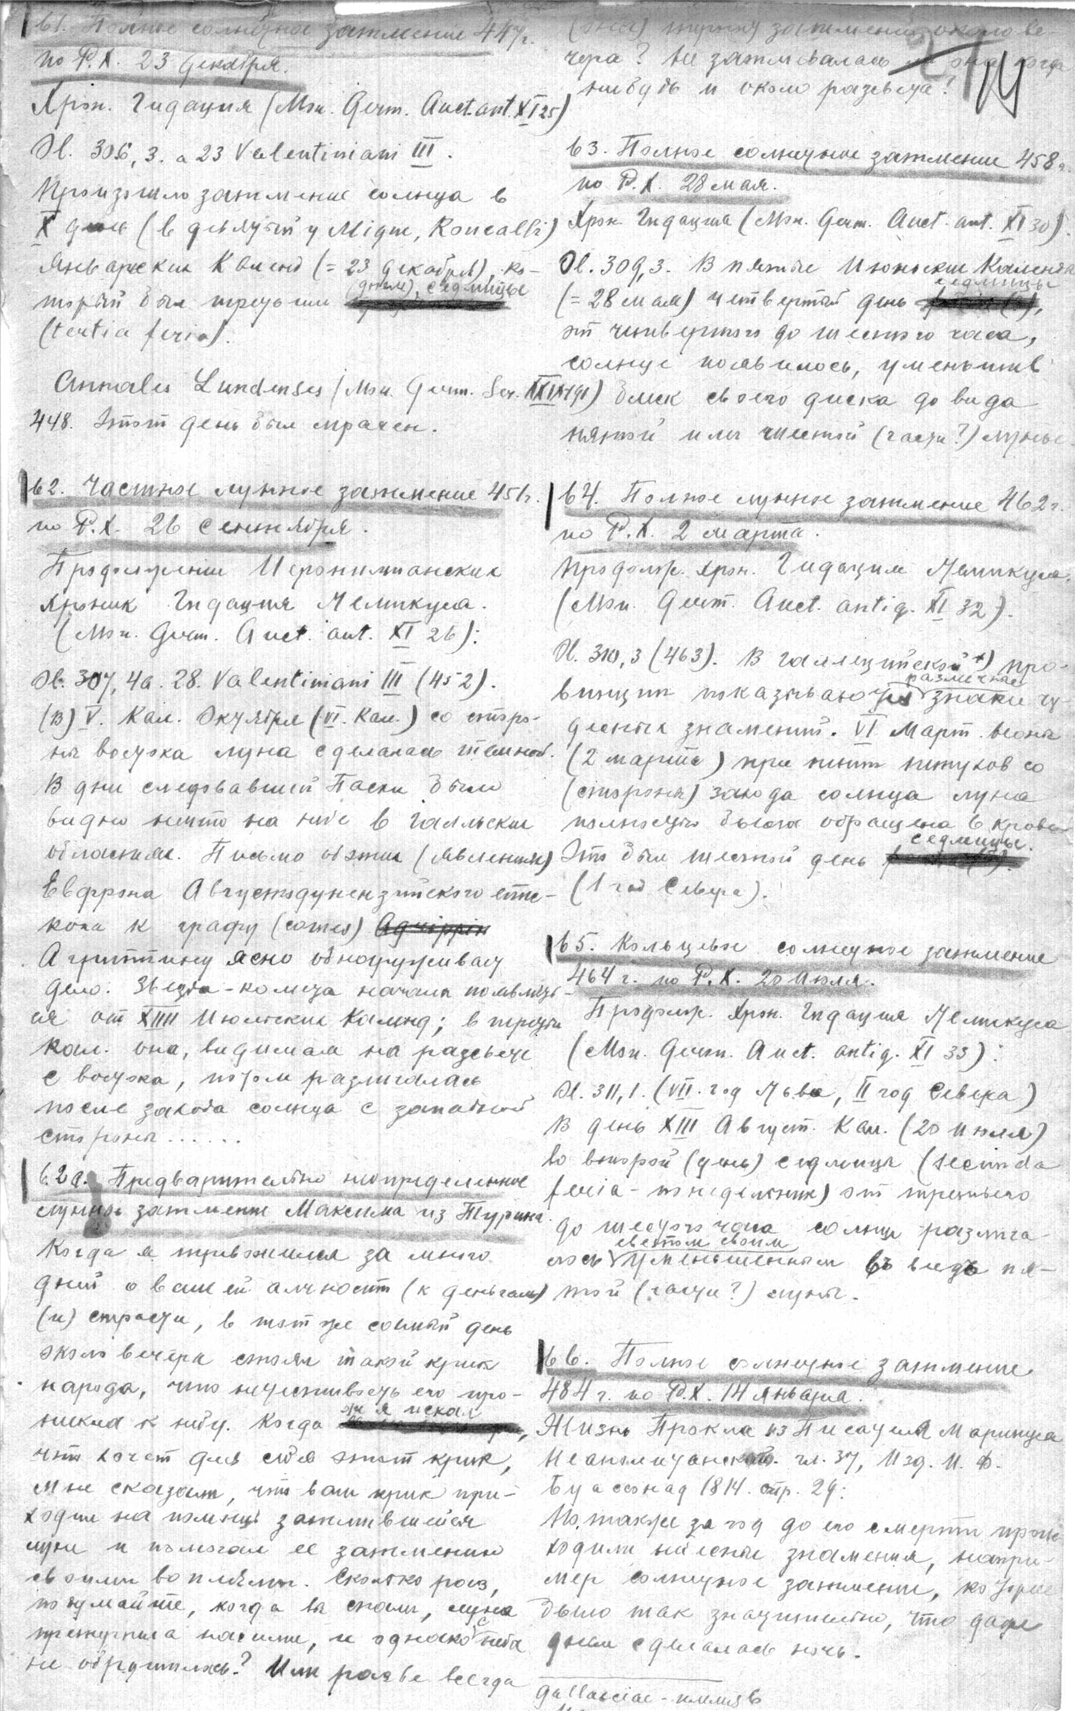 61. Полное солнечное затмение 447г.
по Р.Х. 23 декабря.
Хрон. Гидация (Mon. Germ. Auct. ant. XI 25)
Ol. 306, 3. a 23 Valentiniani III.
Произошло затмение солнца в
X день (в девятый у Migne, Roncalli)
Январских Календ (= 23 декабря), ко-
торый был третьим (днем) седмицы
(tertia feria).
Annales Lundenses (Mon. Germ. Scr. XXIX 191)
448. Этот день был мрачен.
62. Частное лунное затмение 451г.
по Р.Х. 26 сентября.
Продолжение Иеронимианских
хроник Гидация Лемикуса.
(Mon. Germ. Auct. ant. XI 26):
Ol. 307, 4a. 28. Valentiniani III (452).
(в) V. Кал. Октября (VI. Кал.) со сторо-
ны востока луна сделалась темной.
В дни следовавшей Пасхи было
видно нечто на небе в Галльских
областях. Письмо об этих (явлениях)
Евфрона Августодунензийского епис-
копа к графу (comes)
Агриппину ясно обнаруживает
дело. Звезда-комета начала появлять-
ся от XIIII Июльских Календ; в третьи
Кал. она, видимая на рассвете
с востока, потом различалась
после захода солнца с западной
стороны......
62а. Предварительно неопределенное
лунное затмение Максима из Турина.
Когда я тревожился за много
дней о вашей алчности (к деньгам)
(и) страсти, в тот же самый день
около вечера стоял такой крик
народа, что нечестивость его про-
никла к небу. Когда я искал
что хочет для себя этот крик,
мне сказали, что ваш крик при-
ходил на помощь затмившейся
луне и помогал ее затмению
своими воплями. Сколько раз,
подумайте, когда вы спали, луна
претерпела насилие, и однако с неба
не обрушилась? Или разве всегда
(она) терпит затмения около ве-
чера? Не затмевалась ли она когда
нибудь и около рассвета?
21
14
63. Полное солнечное затмение 458г.
по Р.Х. 28 мая.
Хрон Гидация (Mon. Germ. Auct. ant. XI 30).
Ol. 309, 3. В пятые Июньские Календы
(= 28 мая) четвертый день седмицы
от четвертого до шестого часа,
солнце появилось, уменьшив
блеск своего диска до вида
пятой или шестой (части?) луны.
64. Полное лунное затмение 462г.
по Р.Х. 2 марта.
Продолж. хрон. Гидация Лемикуса.
(Mon. Germ. Auct. antiq. XI 32).
Ol. 310, 3 (463). В Галлецийской +) про-
винции показываются различные знаки чу-
десных знамений. VI Март. ноны
(2 марта) при пении петухов со
(стороны) захода солнца луна
полностью была обращена в кровь.
Это был шестой день седмицы.
(1 год Севера).
65. Кольцевое солнечное затмение
464 г. по Р.Х. 20 Июля.
Продолж. Хрон. Гидация Лемикуса
(Mon. Germ. Auct. antiq. XI 33):
Ol. 311, 1. (VII год Льва, II год Севера)
В день XIII Август. Кал. (20 июля)
во второй (день) седмицы (secunda
feria - понедельник) от третьего
до шестого часа солнце различа-
лось светом своим уменьшенным въ виде пя-
той (части?) луны.
66. Полное солнечное затмение
484 г. по Р.Х. 14 января.
Жизнь Прокла из Писателя Маринуса
Неаполитанского. гл. 37, Изд. И. Ф.
Буассонад 1814. стр. 29:
Но также за год до его смерти проис-
ходили небесные знамения, напри-
мер солнечное затмение, которое
было так значительно, что даже
днем сделалась ночь.